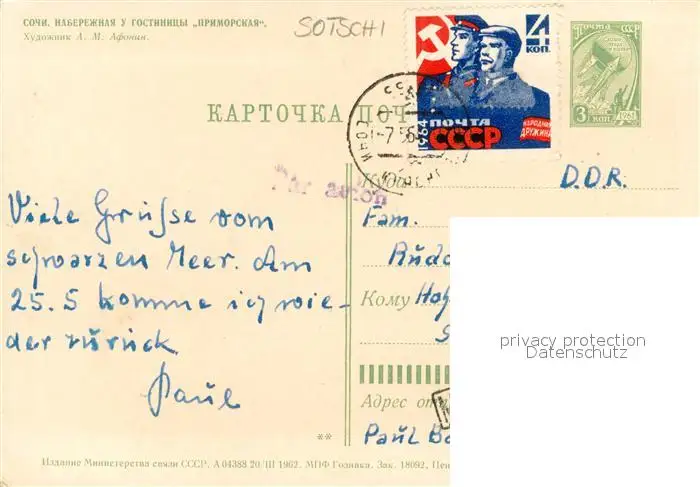 СОЧИ. НАБЕРЕЖНАЯ У ГОСТИНИЦЫ „ПРИМОРСКАЯ“.
Художник А. М. Афонин.
SOTSCHI
4
КОП.
ПОЧТА
СССР
1964
НАРОДНАЯ
ДРУЖИНА
ПОЧТА СССР
3 КОП
1961
КАРТОЧКА ПОЧ
Par avion
Viele Grüße vom
schwarzen Meer. Am
25.5 komme ich wie-
der zurück
Paul
Куда
D.D.R.
Fam.
Кому
Адрес от
Paul
privacy protection
Datenschutz
**
Издание Министерства связи СССР. А 04388 20/III 1962. МПФ Гознака. Зак. 18092.